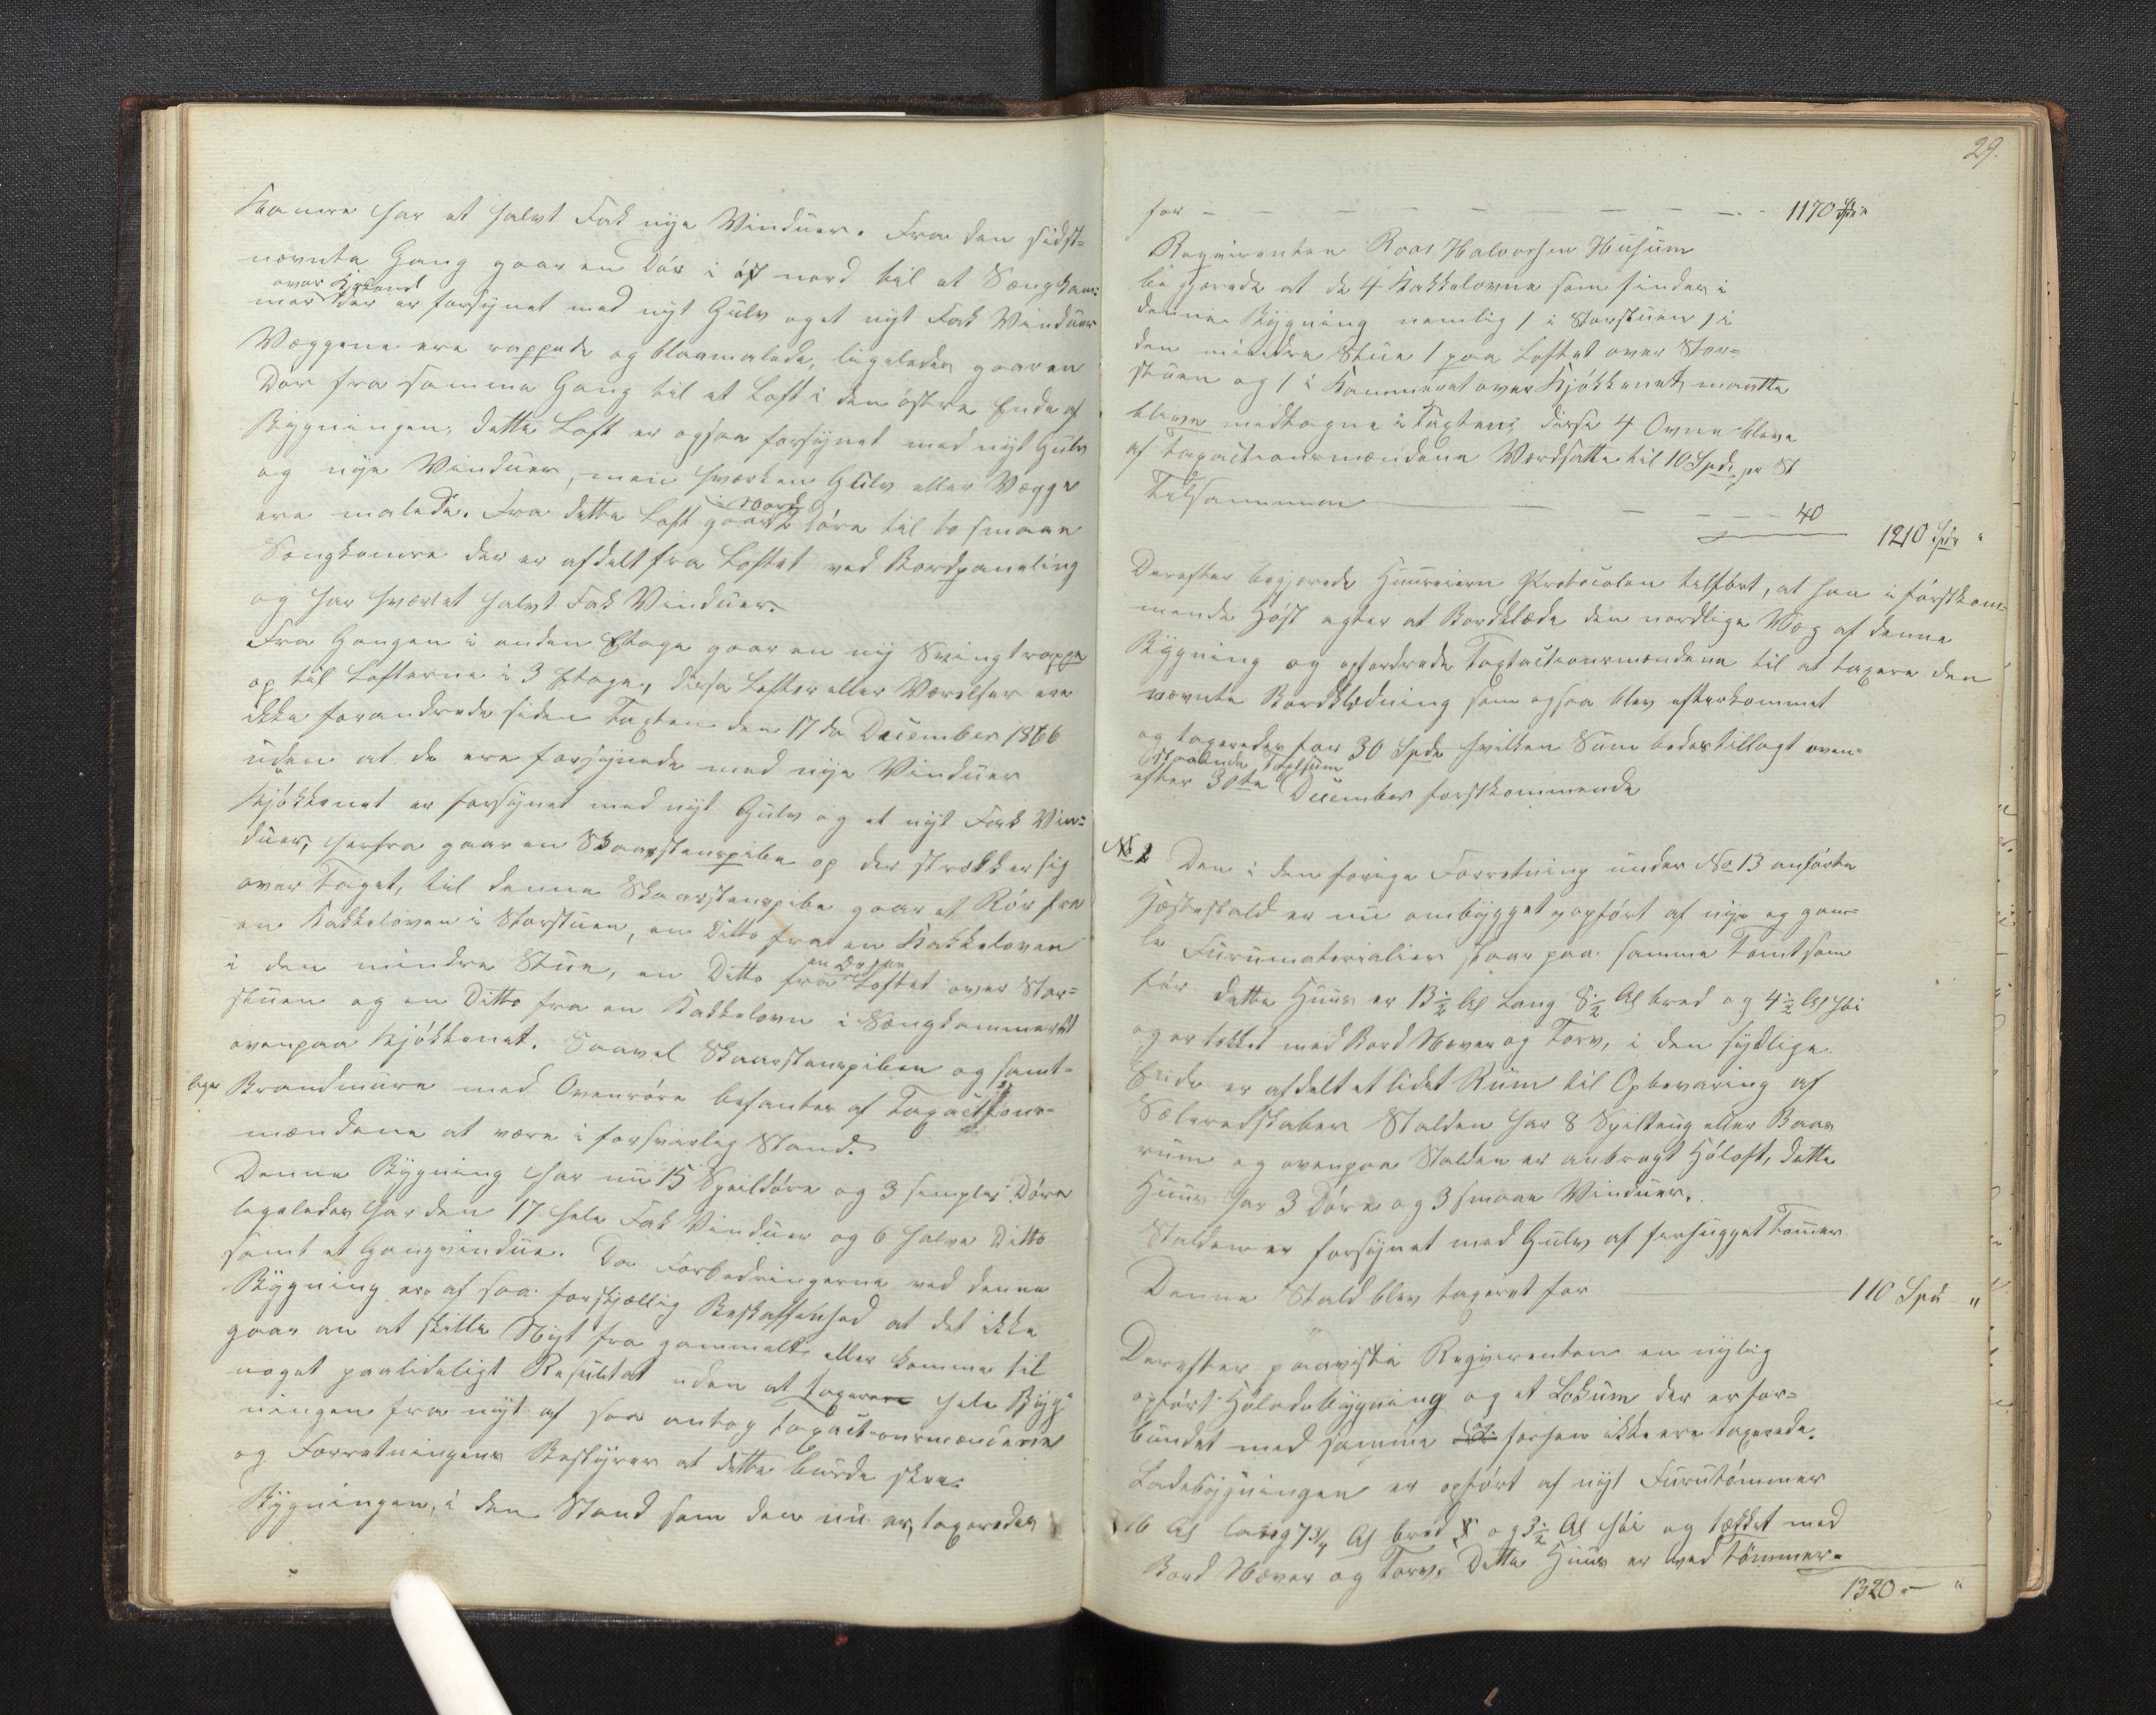 Kamre har et halvt Fak nye Vinduer. Fra den sidst=
nævnte Gang gaar en Dør i øst nord til et Sængkam=
over Kjøkkenet
mer der er forsynet med nyt Gulv og et nyt Fak Vinduer
Væggene ere rappede og blaamalede, ligeledes gaar en
Dør fra samme Gang til et Loft i den østre Ende af
Bygningen, dette Loft er ogsaa forsynet med nyt Gulv
og nye Vinduer, men hværken Gulv eller Vægge
i Nord
ere malede. Fra dette Loft gaar 2 Døre til to smaae
Sængkamre der er afdelt fra Loftet ved Bordpaneling
og har hvært et halvt Fak Vinduer.
Fra Gangen i anden Etage gaar en ny Svingtrappe
op til Lofterne i 3 Etage, disse Lofter eller Værelser ere
ikke forandrede siden Taxten den 17de December 1866
uden at de ere forsynede med nye Vinduer
Kjøkkenet er forsynet med nyt Gulv og et nyt Fak Vin=
duer, herfra gaar en Skaarstenspibe op der strækker sig
over Taget, til denne Skaarstenspibe gaar et Rør fra
en Kakkeloven i Storstuen, en Ditto fra en Kakkeloven
i den mindre Stue, en Ditto fra Loftet over Stor=
stuen og en Ditto fra en Kakkelovn i Sængkammeret
ovenpaa Kjøkkenet. Saavel Skaarstenspiben og samt=
lige Brandmure med Ovnrøre befantes af Taxactions=
mændene at være i forsvarlig Stand.
Denne Bygning har nu 15 Speildøre og 3 simple Døre
ligeledes har den 17 hele Fak Vinduer og 6 halve Ditto
samt et Gangvindue. Da Forbedringerne ved denne
Bygning ere af saa forskjællig Beskaffenhed at det ikke
gaar an at skille Nyt fra gammelt eller komme til
noget paalideligt Resultat uden at taxere hele Byg=
ningen fra nyt af saa antog Taxactionsmændene
og Forretningens Bestyrer at dette burde skee.
Bygningen, i den Stand som den nu er, taxeredes
29.
for - - - - - - - - 1170 Spd "
Reqvirenten Roar Halvorsen Husum
begjærede at de 4 Kakkelovne som findes i
denne Bygning nemlig 1 i Storstuen 1 i
den mindre Stue 1 paa Loftet over Stor=
stuen og 1 i Kammeret over Kjøkkenet maatte
blive medtagne i Taxten, disse 4 Ovne bleve
af Taxactionsmændene Værdsatte til 10 Spd pr St
Tilsammen - - - - 40
1210 Spd "
Derefter begjærede Huuseiern Protocolen tilført, at han i førstkom=
mende Høst agter at Bordklæde den nordlige Væg af denne
Bygning og opfordrede Taxtactionsmændene til at taxere den
nævnte Bordklædning som ogsaa blev efterkommet
og taxeredes for 30 Spd hvilken Sum bedes tillagt oven=
staaende Taxtsum
efter 30te December førstkommende
No 2 Den i den forige Forretning under No 13 anførte
Hestestald er nu ombygget, opført af nye og gam=
le Furumaterialier staar paa samme Tomt som
før dette Huus er 13½ Al lang 8½ Al bred og 4½ Al høi
og er tekket med Bord Næver og Torv, i den sydlige
Ende er afdelt et lidet Rum til Opbevaring af
Sæleredskaber Stalden har 8 Spiltaug eller Baas
rum og ovenpaa Stalden er anbragt Høloft, dette
Huus har 3 Døre og 3 smaae Vinduer.
Stalden er forsynet med Gulv af firhugget Tømer
Denne Stald blev taxeret for 110 Spd "
Derefter paaviste Reqvirenten en nylig
opført Høladebygning og et Lokum der er for=
bundet med samme forhen ikke ere taxerede.
Ladebygningen er opført af nyt Furutømmer
16 Al lang 7¾ Al bred og 3½ Al høi og tækket med
Bord Næver og Torv. Dette Huus er ved Tømmer=
1320 - "